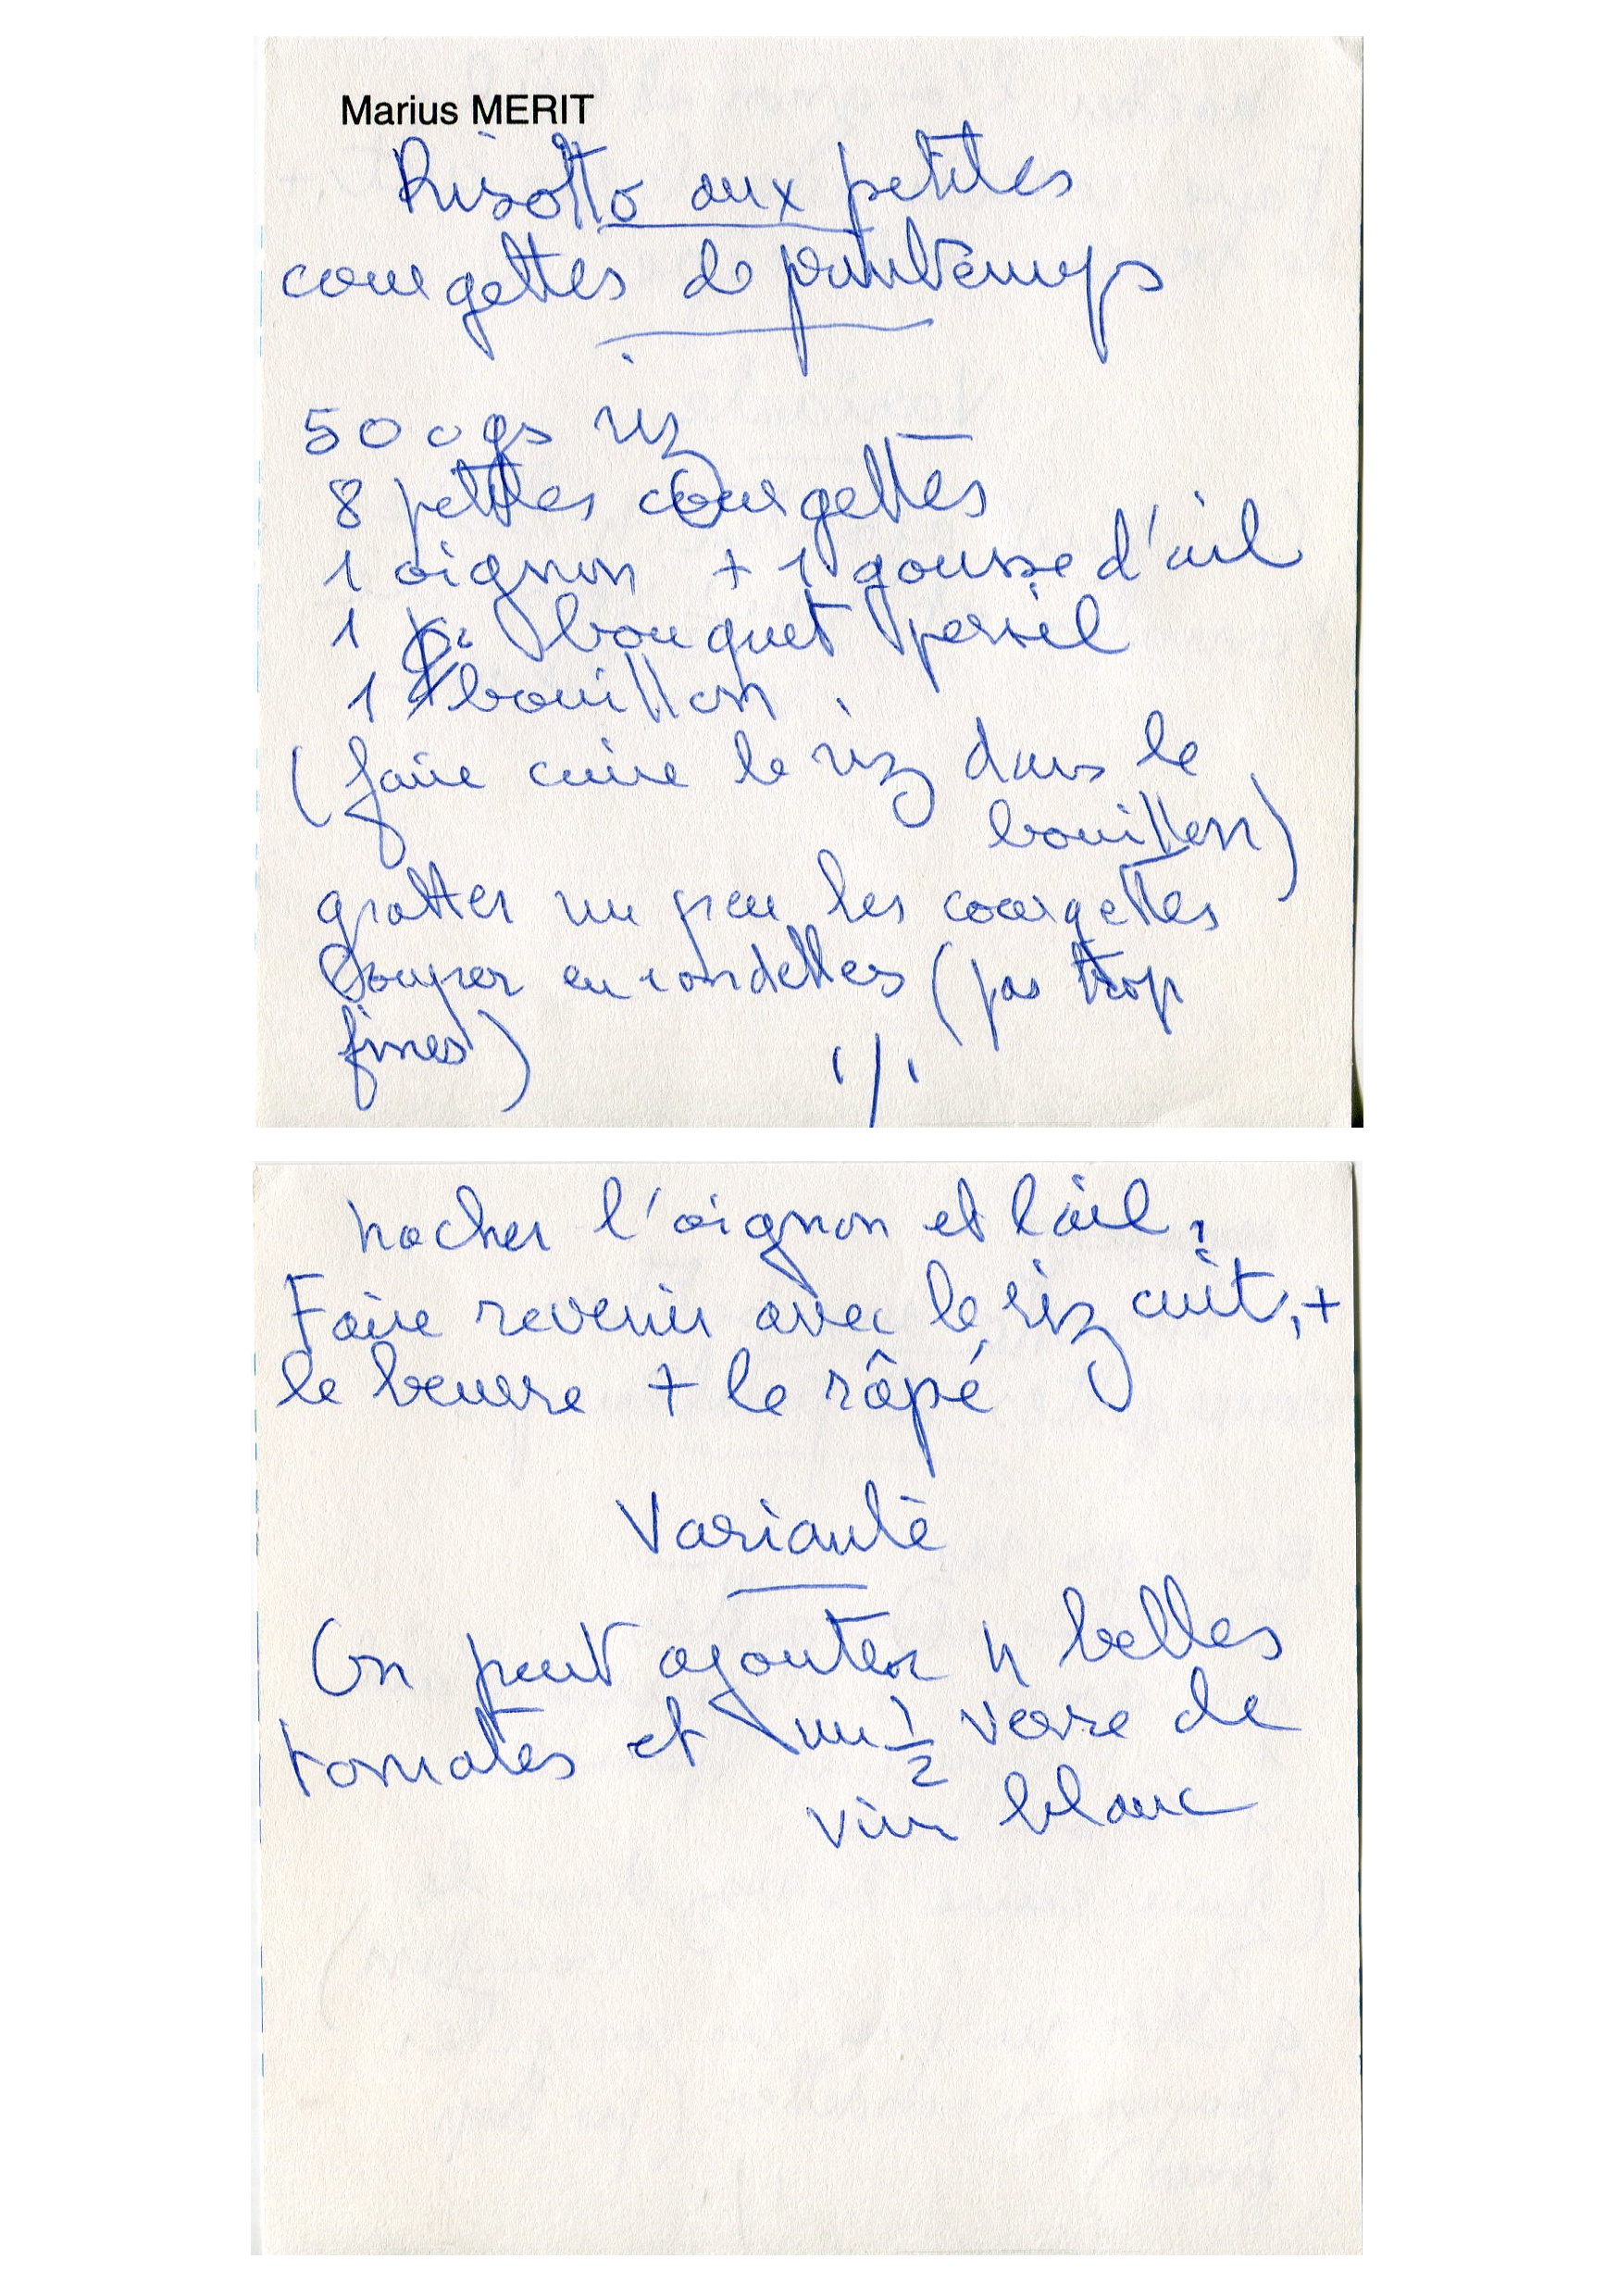 Marius MERIT
Risotto aux petites
courgettes de printemps
500gs riz
8 petites courgettes
1 oignon + 1 gousse d'ail
1 bouquet persil
1 bouillon
(faire cuire le riz dans le
bouillon)
gratter un peu les courgettes
Couper en rondelles (pas trop
fines)
./.
hacher l'oignon et l'ail.
Faire revenir avec le riz cuit, +
le beurre + le râpé
Variante
On peut ajouter 4 belles
tomates et un 1/2 verre de
vin blanc